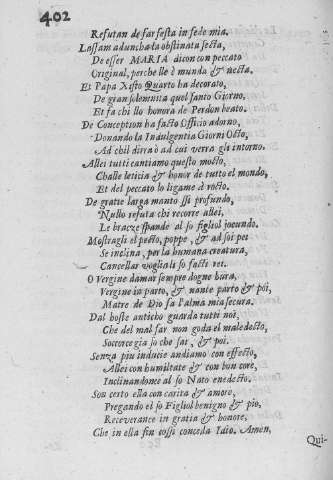 402
Refutan de far festa in sede mia.
Lassam adunch a la obstinata secta,
De esser MARIA dicon con peccato
Original, perche lle è munda & necta.
Et Papa Xisto Quarto ha decorato,
De gran solemnia quel santo Giorno,
Et fa chi llo honora de Perdon beato.
De Conception ha facto Officio adorno,
Donando la Indulgentia Giorni Octo,
Ad chil dirrà ad cui verra gli intorno.
Allei tutti cantiamo questo mocto,
Challe leticia & honor de tutto el mondo,
Et del peccato lo ligame è rocto.
De gratie larga manto ssi profundo,
Nullo refuta chi recorre allei,
Le bracze spande al so figliol jocundo.
Mostragli el pecto, poppe, & ad soi pet
Se inclina, per la humana creatura,
Cancellar vogliali so facti ret.
O Vergine damar sempre dogne hara,
Vergine in parto, & nante parto & poi,
Matre de Dio fa l'alma mia secura.
Dal hoste anticho guarda tutti noi,
Che del mal far non goda el maledecto,
Soccorce gia so che far, & poi.
Senza piu inducie andiamo con effecto,
Allei con humiltate & con bon core,
Inclinandome al so Nato enedecto.
Son certo ella con carita & amore,
Pregando el so Figliol benigno & pio,
Receverance in gratia & honore,
Che in ella fin cossi conceda Idio. Amen,
Qui-